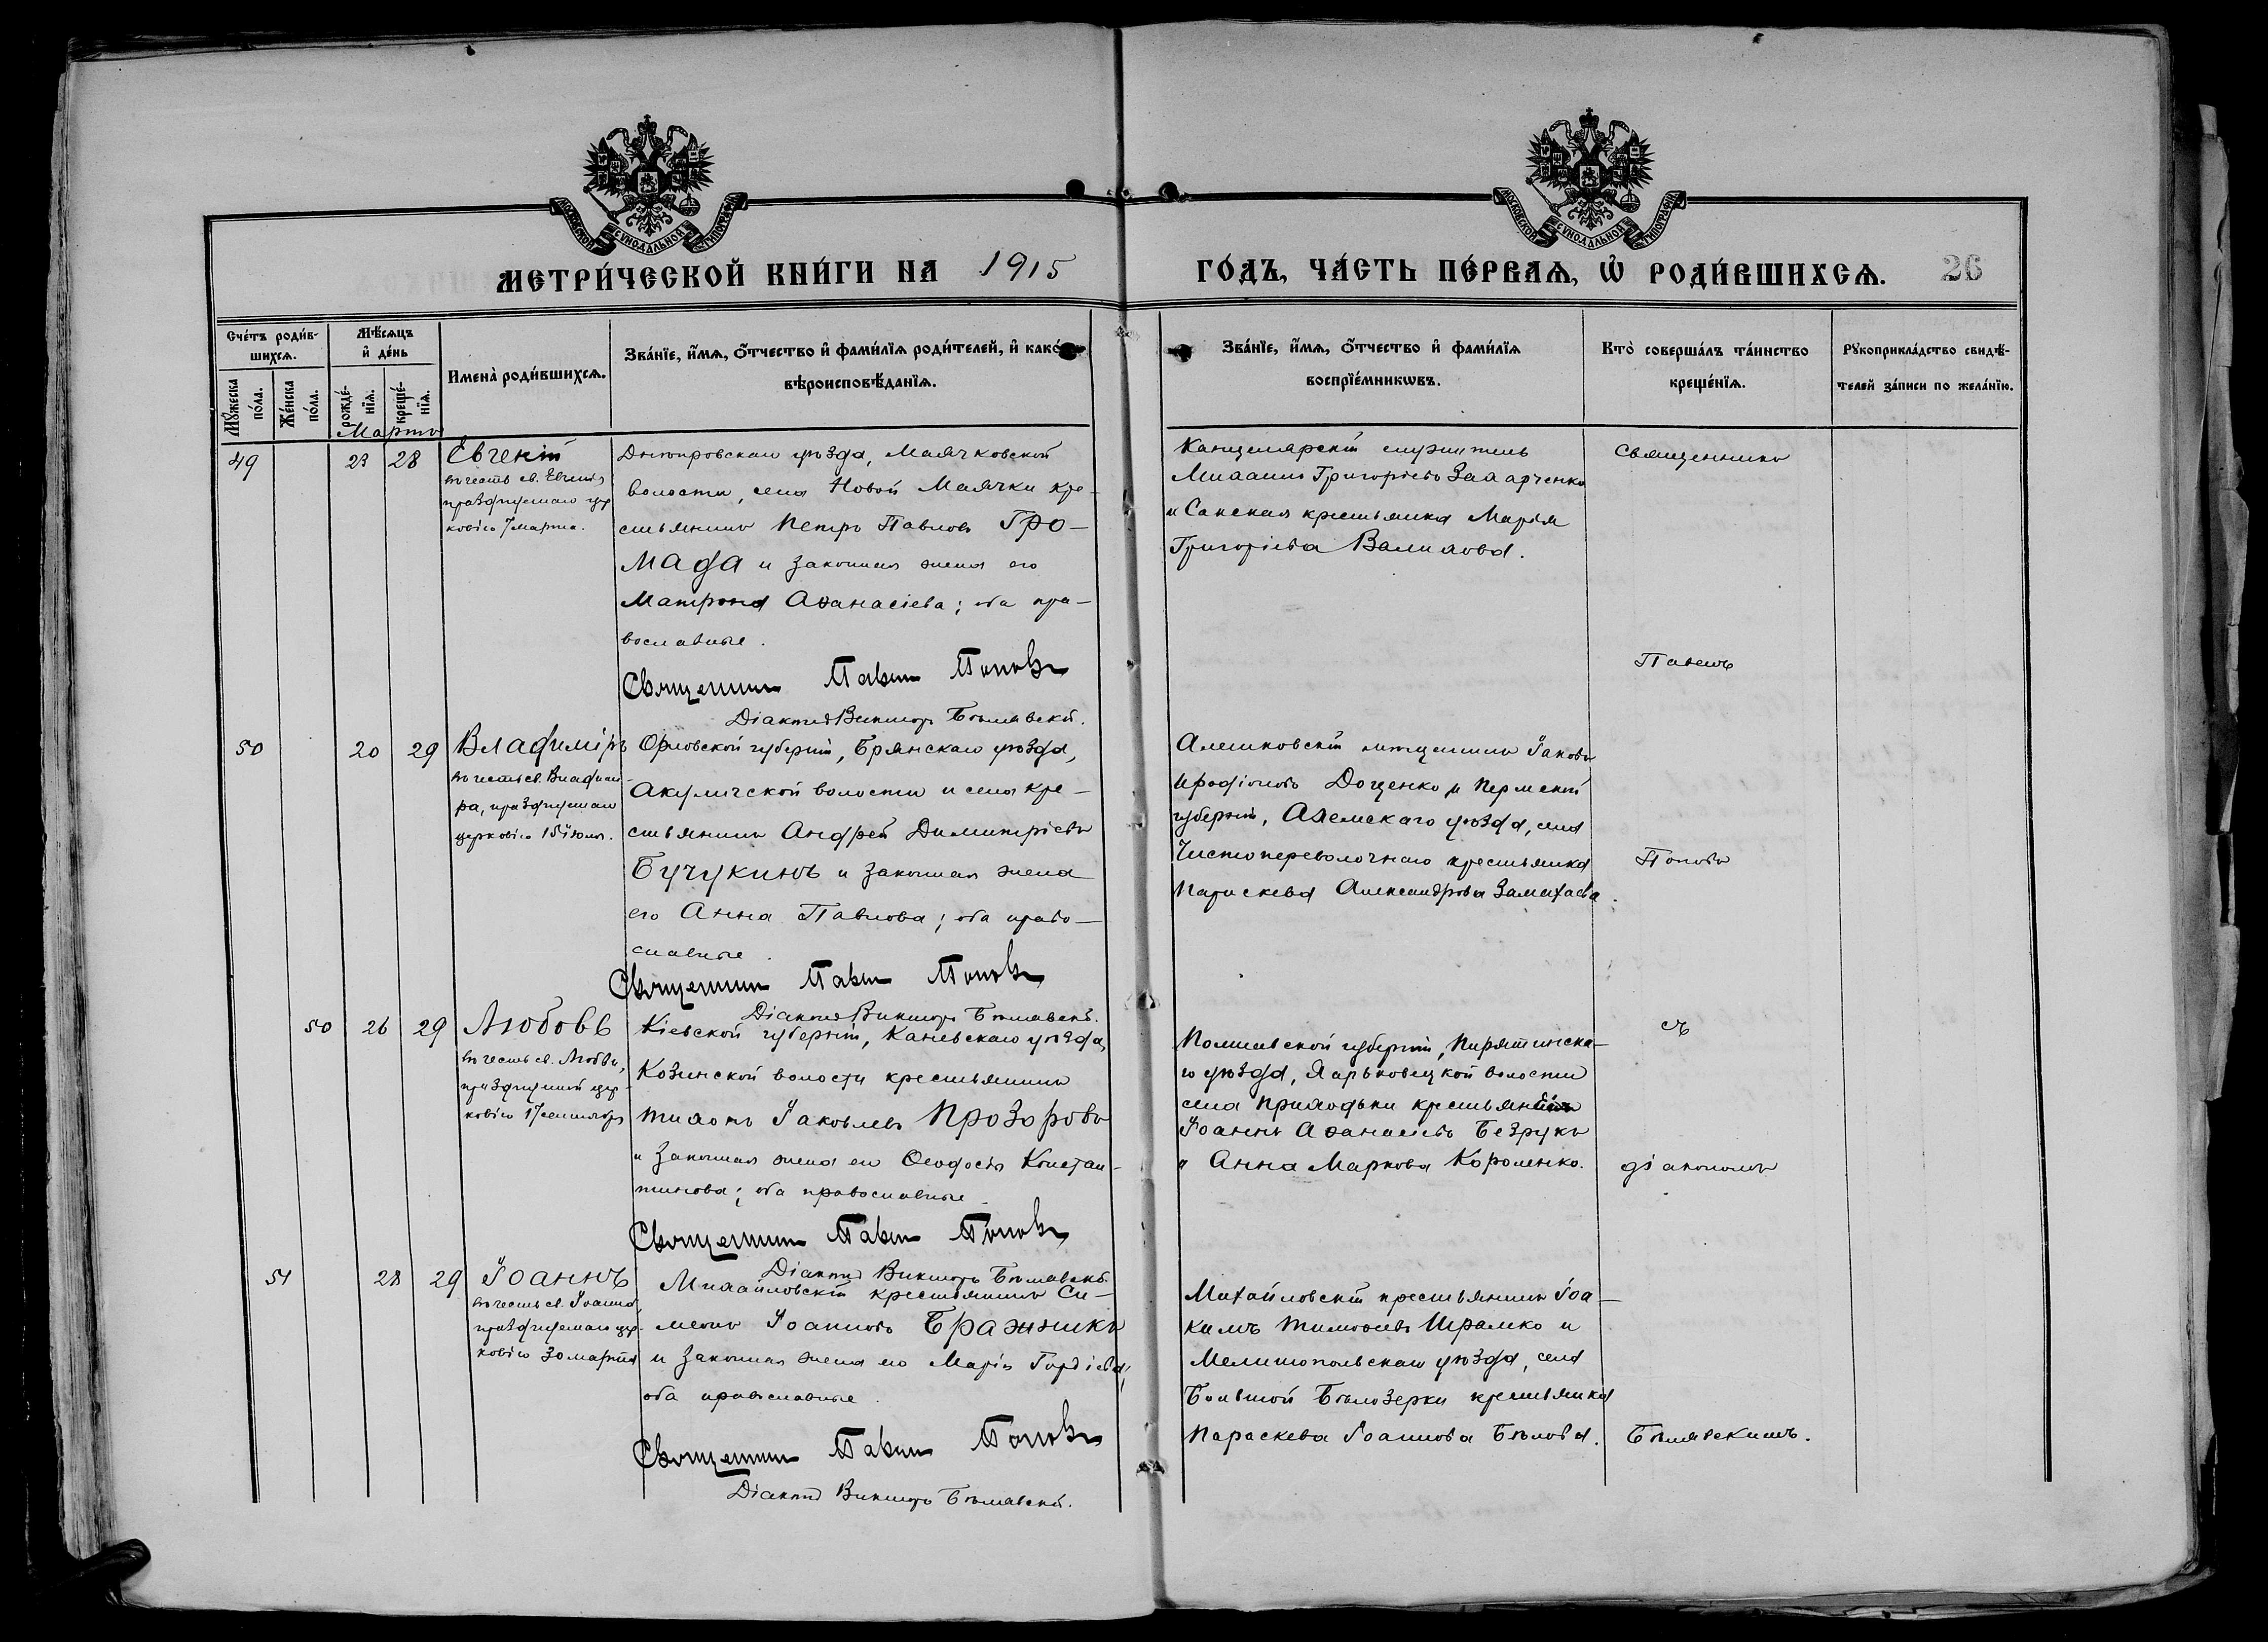 МОСКОВСКОЙ СѴНОДАЛЬНОЙ ТИПОГРАФІИ
МОСКОВСКОЙ СѴНОДАЛЬНОЙ ТИПОГРАФІИ
МЕТРИ́ЧЕСКОЙ КНИ́ГИ НА 1915 ГО́ДЪ, ЧА́СТЬ ПЕ́РВАѦ, Ѡ҆ РОДИ́ВШИХСѦ. 26
Сче́тъ роди́в-
шихсѧ.
Мꙋ́жеска по́ла.
Же́нска по́ла.
Мѣ́сѧцъ
и҆ де́нь
рожде́-
нїѧ.
креще́-
нїѧ.
Имена̀ роди́вшихсѧ.
Зва́нїе, и҆́мѧ, ѻ҆́тчество и҆ фами́лїѧ роди́телей, и҆ како́
вѣроисповѣ́данїѧ.
Зва́нїе, и҆́мѧ, ѻ҆́тчество и҆ фами́лїѧ
воспрїе́мникѡвъ.
Кто̀ соверша́лъ та́инство
креще́нїѧ.
Рꙋкоприкла́дство свидѣ́-
телей за́писи по жела́нїю.
Мартъ
49 23 28 Евгеній
въ честь св. Евгенія
празднуемаго цер
ковію 7 марта.
Днѣпровскаго уѣзда, Маячковской
волости, села Новой Маячки кре-
стьянинъ Петръ Павловъ Гро-
мада и законная жена его
Матрона Аѳанасіева; оба пра-
вославные.
Священникъ Павелъ Поповъ
Діаконъ Викторъ Бѣлявскій.
Канцелярскій служитель
Михаилъ Григорьевъ Захарченко
и крестьянка Марія
Григоріева
Священникъ
Павелъ
50 20 29 Владиміръ
въ честь св. Владими-
ра, празднуемаго
церковію 15 іюля.
Орловской губерніи, Брянскаго уѣзда,
Акуличской волости и села кре-
стьянинъ Андрей Димитріевъ
Бучукинъ и законная жена
его Анна Павлова; оба право-
славные.
Священникъ Павелъ Поповъ
Діаконъ Викторъ Бѣлявскій.
Алешковскій мѣщанинъ Іаковъ
Иродіоновъ Доценко и Пермской
губерніи, уѣзда, села
Чистопереволочнаго крестьянка
Параскева Александрова Заматаева.
Поповъ
50 26 29 Любовь
въ честь св. Любви,
празднуемой цер-
ковію 17 сентября
Кіевской губерніи, Каневскаго уѣзда,
Козинской волости крестьянинъ
Тихонъ Іаковлевъ Прозоровъ
и законная жена его Ѳеодосія Констан-
тинова; оба православные
Священникъ Павелъ Поповъ
Діаконъ Викторъ Бѣлявскій.
Полтавской губерніи, Пирятинска-
го уѣзда, Харьковецкой волости
села Приходьки крестьянинъ
Іоаннъ Аѳанасіевъ Безрукъ
и Анна Маркова Короленко.
съ
діакономъ
51 28 29 Іоаннъ
въ честь св. Іоанна,
празднуемаго цер-
ковію 30 марта
Михайловскій крестьянинъ Си-
меонъ Іоанновъ Бражникъ
и законная жена его Марія Гордіева;
оба православные.
Священникъ Павелъ Поповъ
Діаконъ Викторъ Бѣлявскій.
Михайловскій крестьянинъ Іоа-
кимъ Тимоѳеевъ Шрамко и
Мелитопольскаго уѣзда, села
Большой Бѣлозерки крестьянка
Параскева Іоаннова Бѣлова.
Бѣлявскимъ.